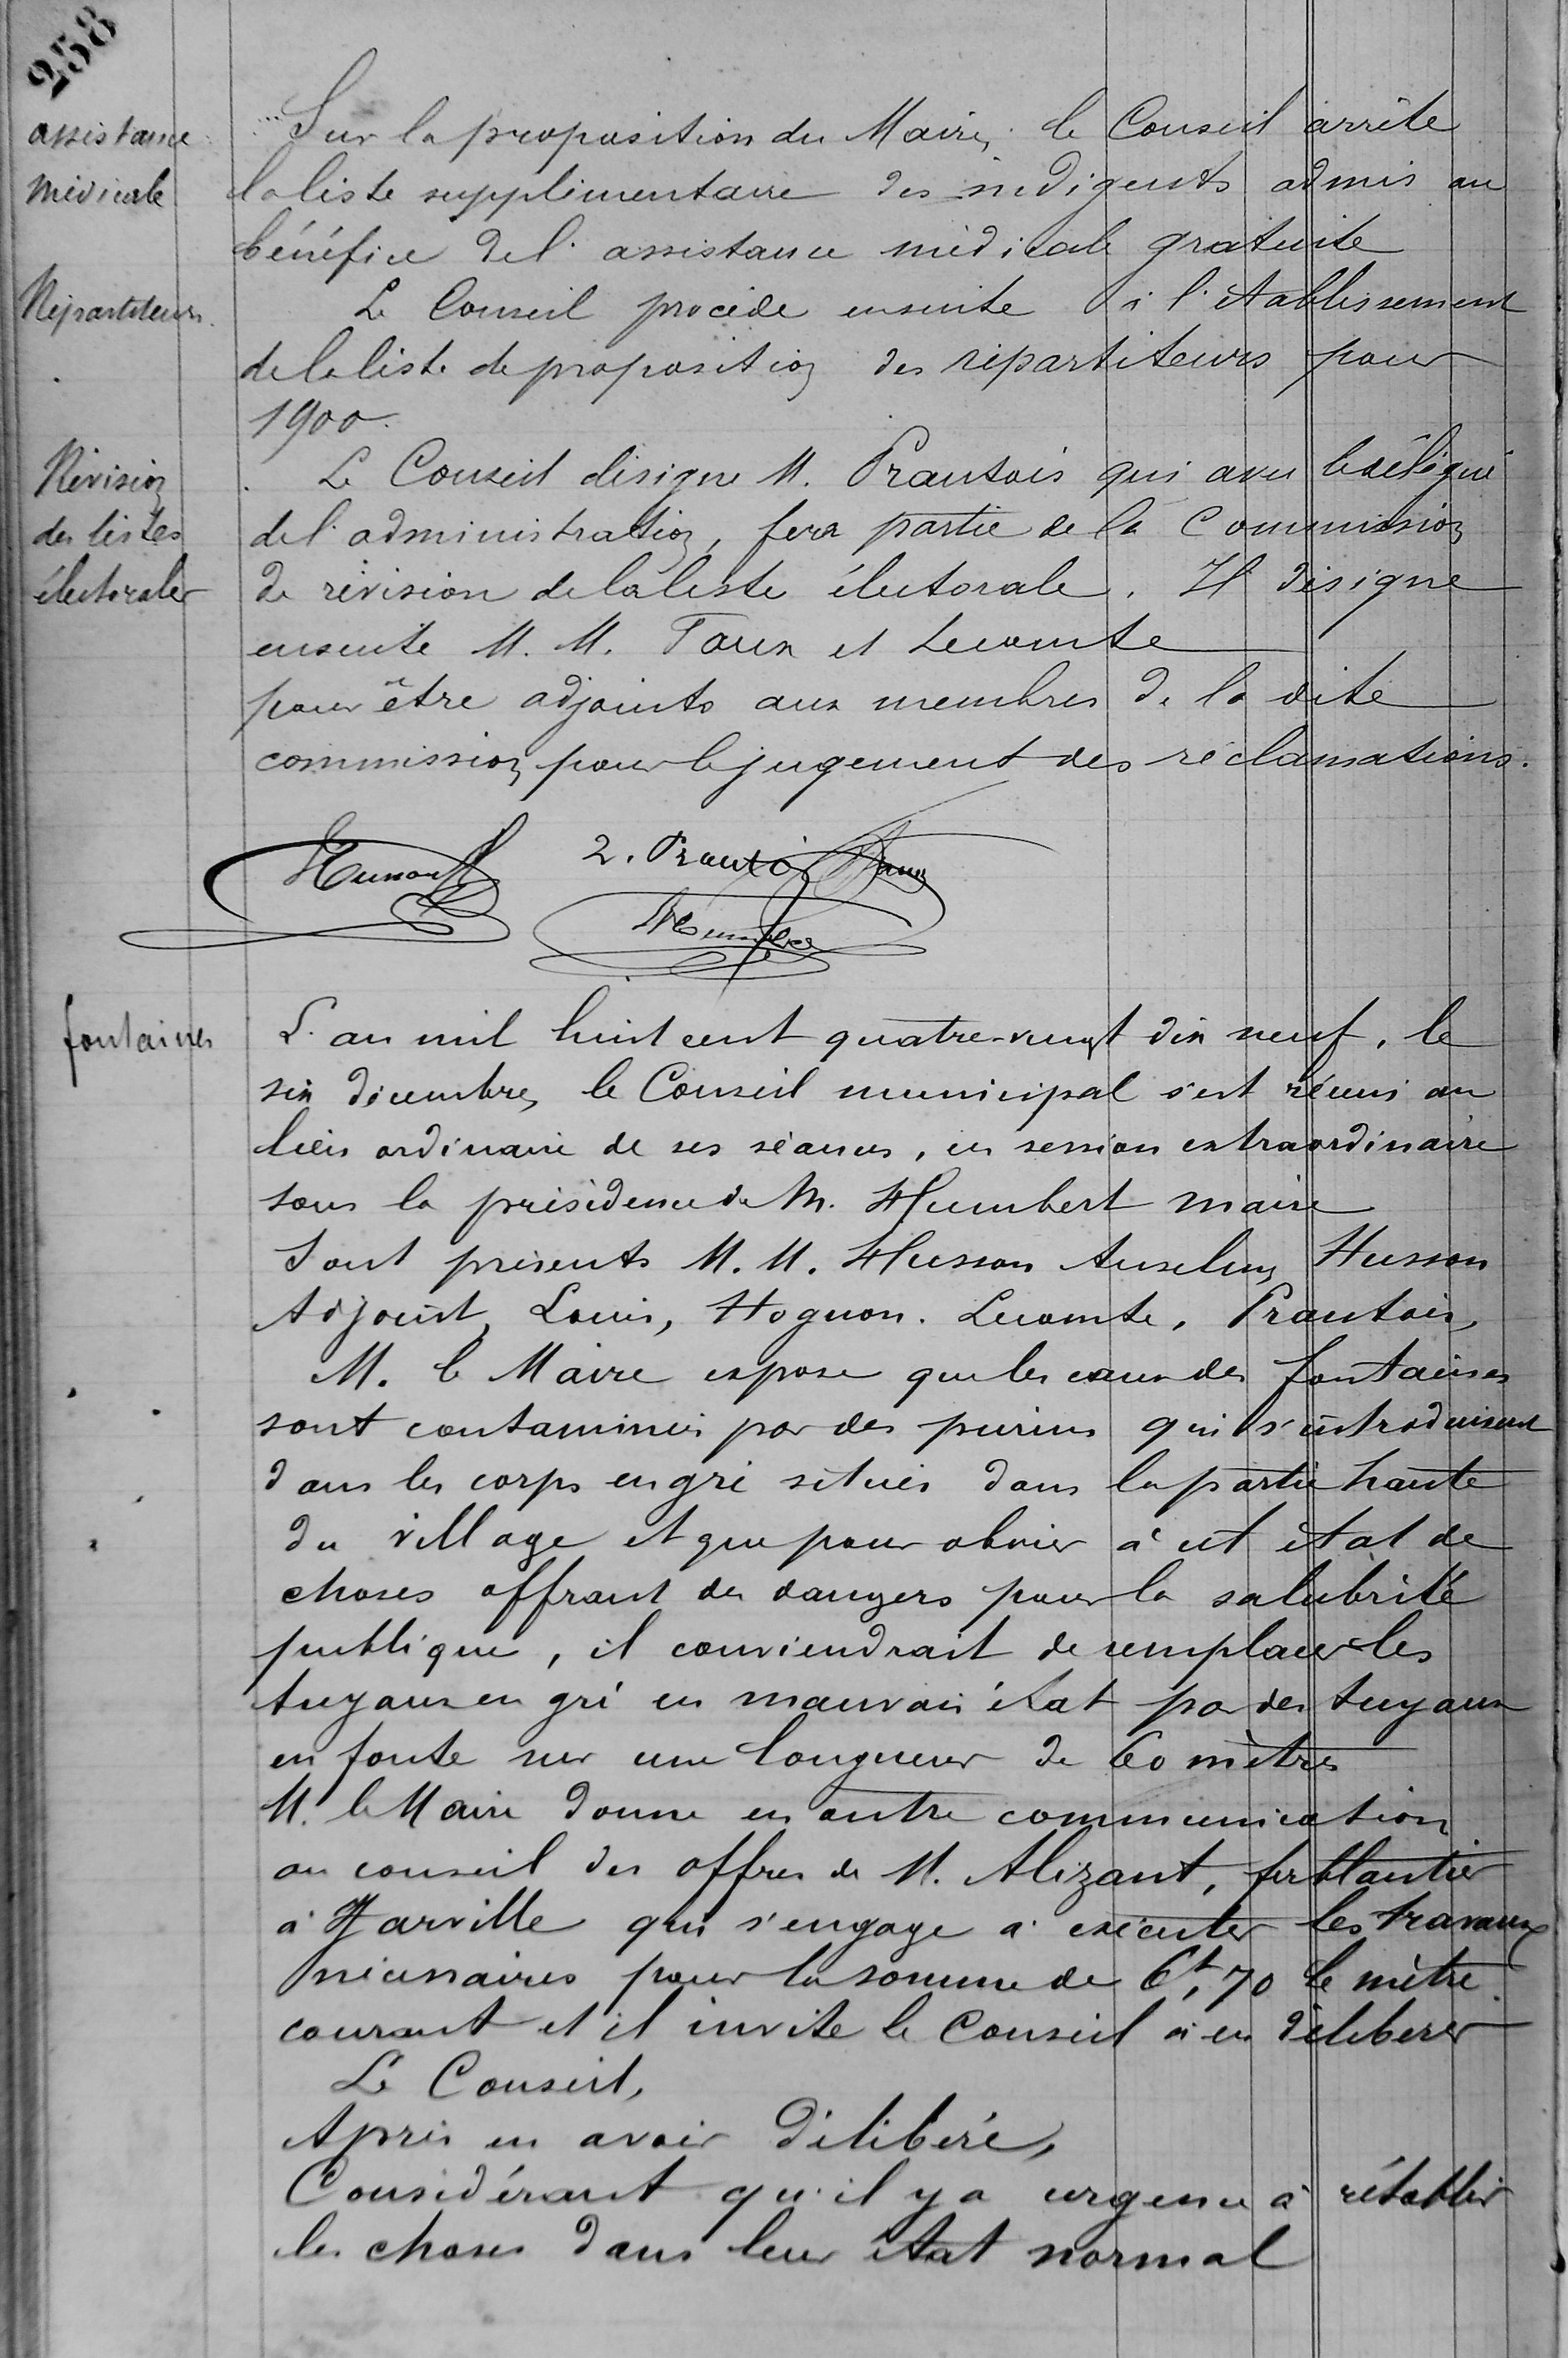 258
assistance
médicale
Sur la proposition du Maire, le Conseil arrête
la liste supplémentaire des indigents admis au
bénéfice de l'assistance médicale gratuite
Répartiteurs.
Le Conseil procède ensuite à l'établissement
de la liste de proposition des répartiteurs pour
1900.
Révision
des listes
électorales
Le Conseil désigne M. Prautois qui avec le délégué
de l'administration, fera partie de la Commission
de révision de la liste électorale. Il désigne
ensuite M. M. Toux et Lecomte
pour être adjoints aux membres de la dite
commission pour le jugement des réclamations.
L. Prautois
Humbert
fontaines
L'an mil huit cent quatre-vingt dix neuf, le
six décembre, le Conseil municipal s'est réuni au
lieu ordinaire de ses séances, en session extraordinaire
sous la présidence de M. Humbert maire
Sont présents M. M. Husson Anselme, Husson
Adjoint, Louis, Hognon. Lecomte, Prautois,
M. le Maire expose que les eaux des fontaines
sont contaminées par des purins qui s'introduisent
dans les corps en gré situés dans la partie haute
du village et que pour obvier à cet état de
choses offrant des dangers pour la salubrité
publique, il conviendrait de remplacer les
tuyaux en gré en mauvais état par des tuyaux
en fonte sur une longueur de 60 mètres
M. le Maire donne en outre communication
au conseil des offres de M. Alizant, ferblantier
à Harville qui s'engage à exécuter les travaux
nécessaires pour la somme de 6f,70 le mètre
courant et il invite le Conseil à en délibérer
Le Conseil,
Après en avoir délibéré,
Considérant qu'il y a urgence à rétablir
les choses dans leur état normal